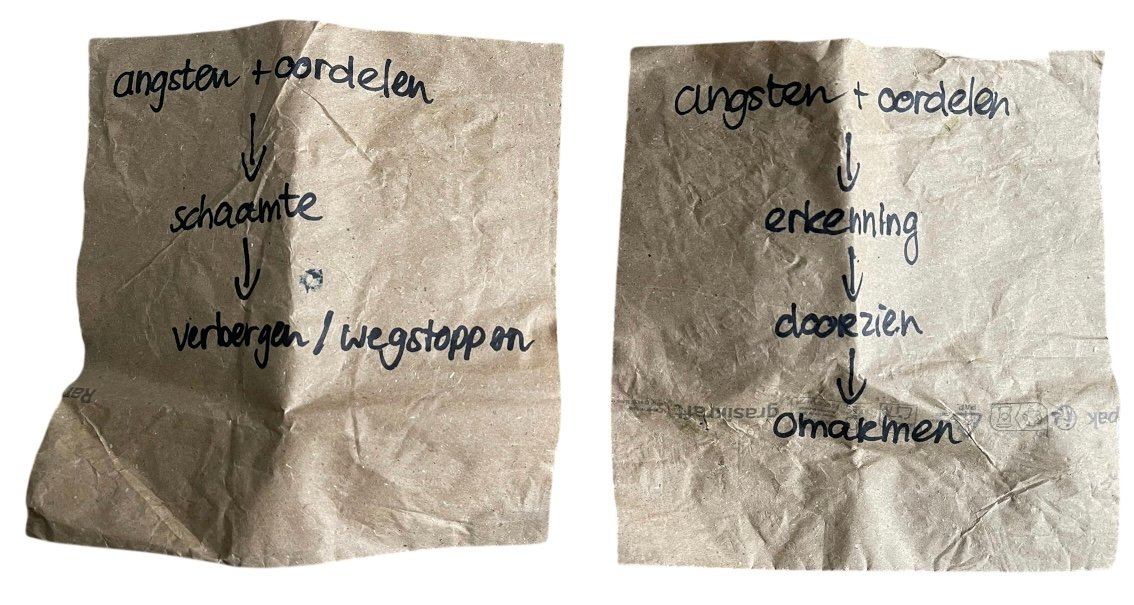 angsten + oordelen
↓
schaamte
↓
verbergen / wegstoppen
angsten + oordelen
↓
erkenning
↓
doorzien
↓
omarmen